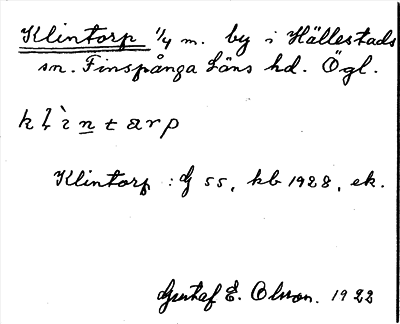 Klintorp 1/4 m. by i Hällestads
sn. Finspånga Läns hd. Ögl.
klìntarp
Klintorp : G 55, kb 1928, ek.
Gustaf E. Olsson. 1922